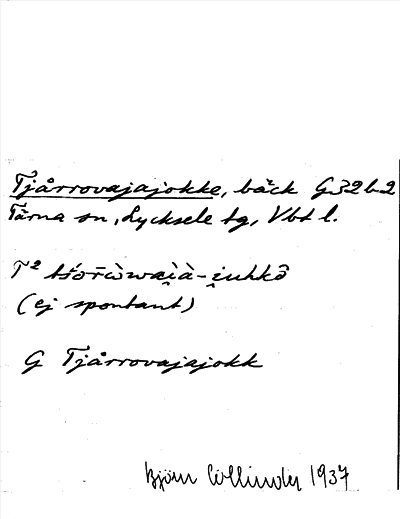 Tjårrovajajokke, bäck G32b2
Tärna sn, Lycksele tg, Vbt l.
T² tśo̅r̄ɷ̀wai̯à-i̯uhkȏ
(ej spontant)
G Tjårrovajajokk
Björn Collinder 1937